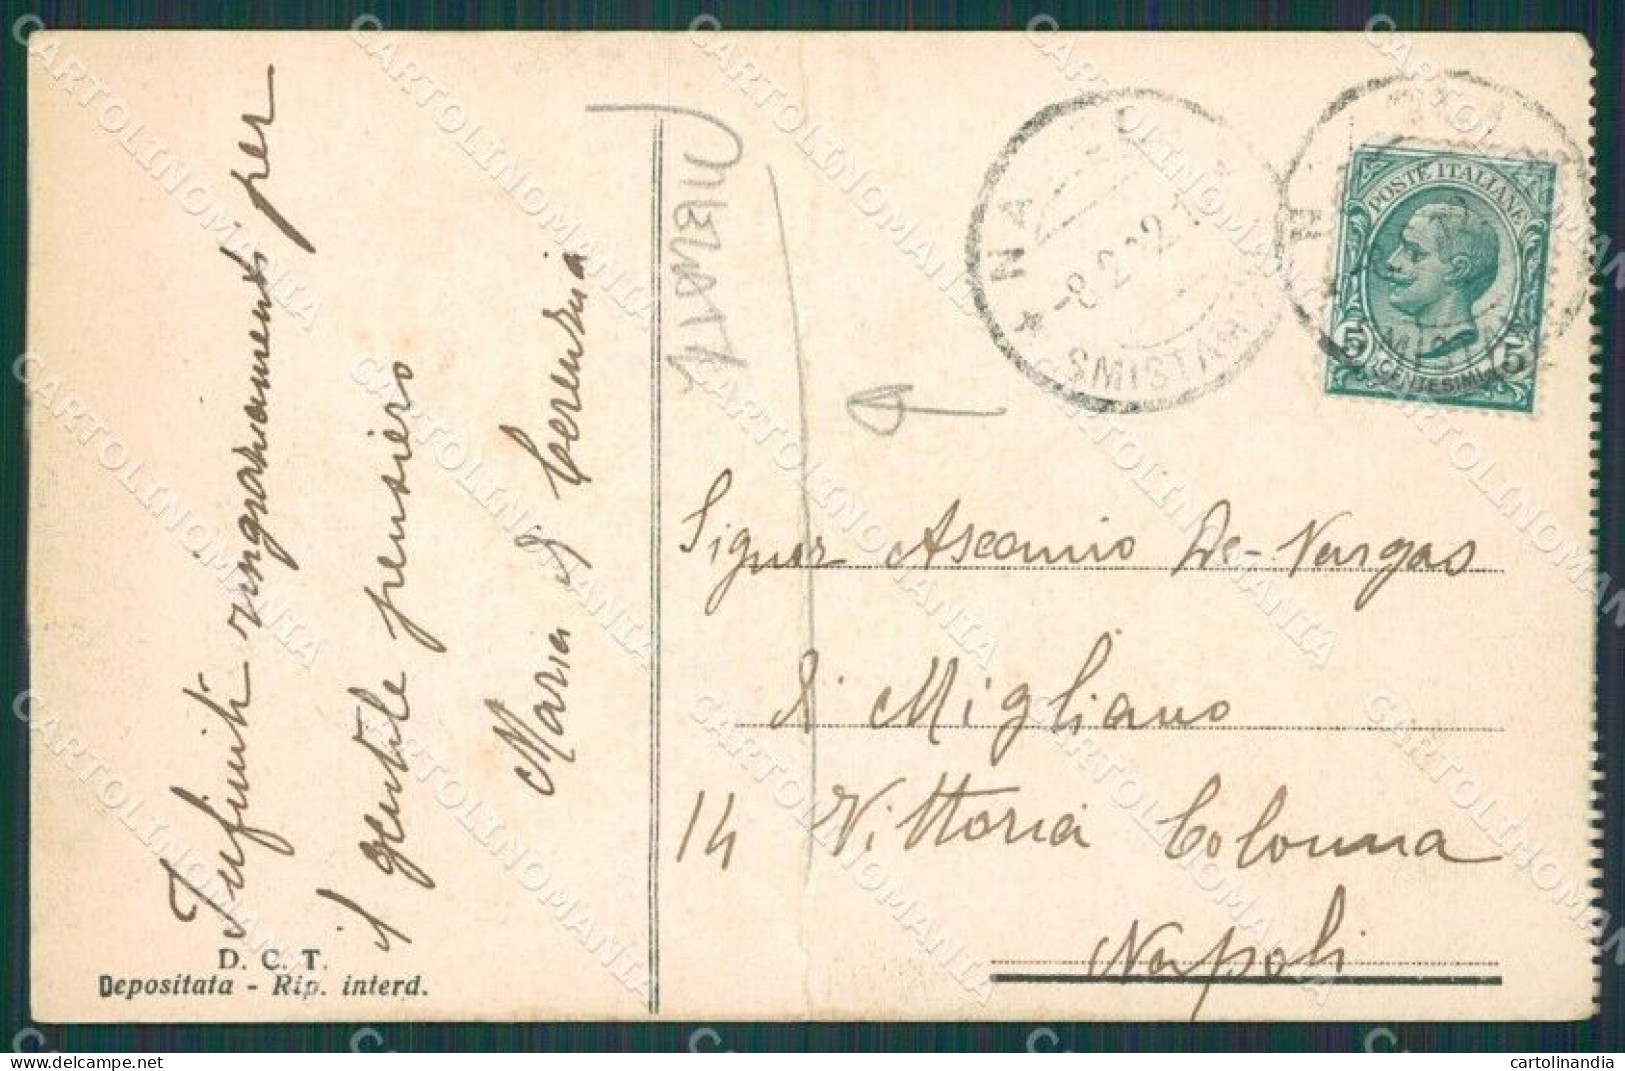 Infiniti ringraziamenti per
il gentile pensiero
Maria di Cerenzia
D. C. T.
Depositata - Rip. interd.
NA
-8.2
SMISTAM
POSTE ITALIANE
5 CENTESIMI 5
Signor Ascanio De-Vargas
di Migliano
14 Vittoria Colonna
Napoli
CARTOLINOMANIA
cartolinomania.com
cartolinandia